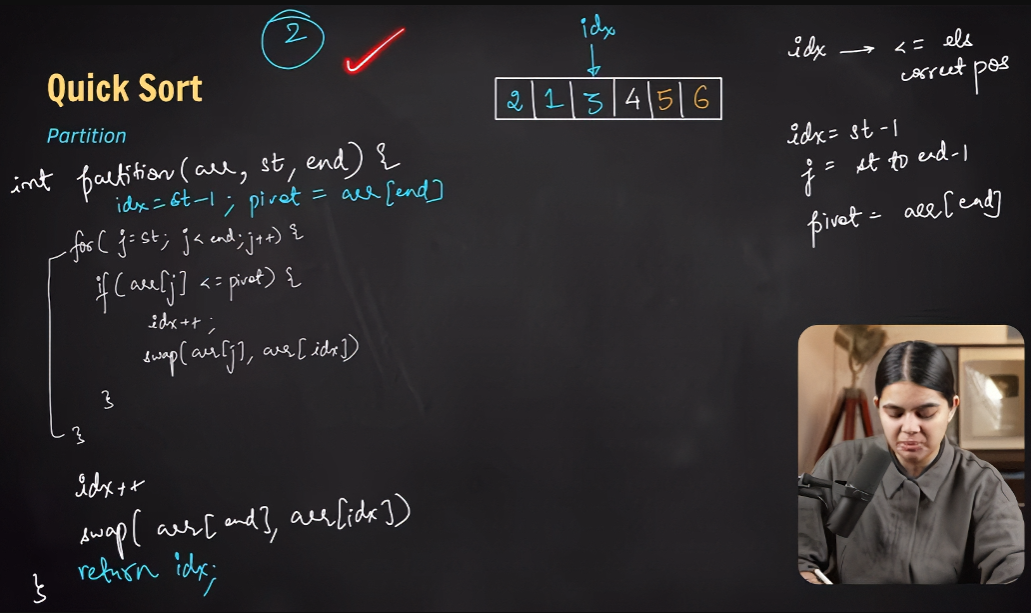 2
Quick Sort
Partition
int partition(arr, st, end) {
idx = st-1; pivot = arr[end]
for( j=st; j<end; j++) {
if(arr[j] <= pivot) {
idx++;
swap(arr[j], arr[idx])
}
}
idx++
swap( arr[end], arr[idx])
return idx;
}
idx
2 1 3 4 5 6
idx → <= els
correct pos
idx = st-1
j = st to end-1
pivot = arr[end]